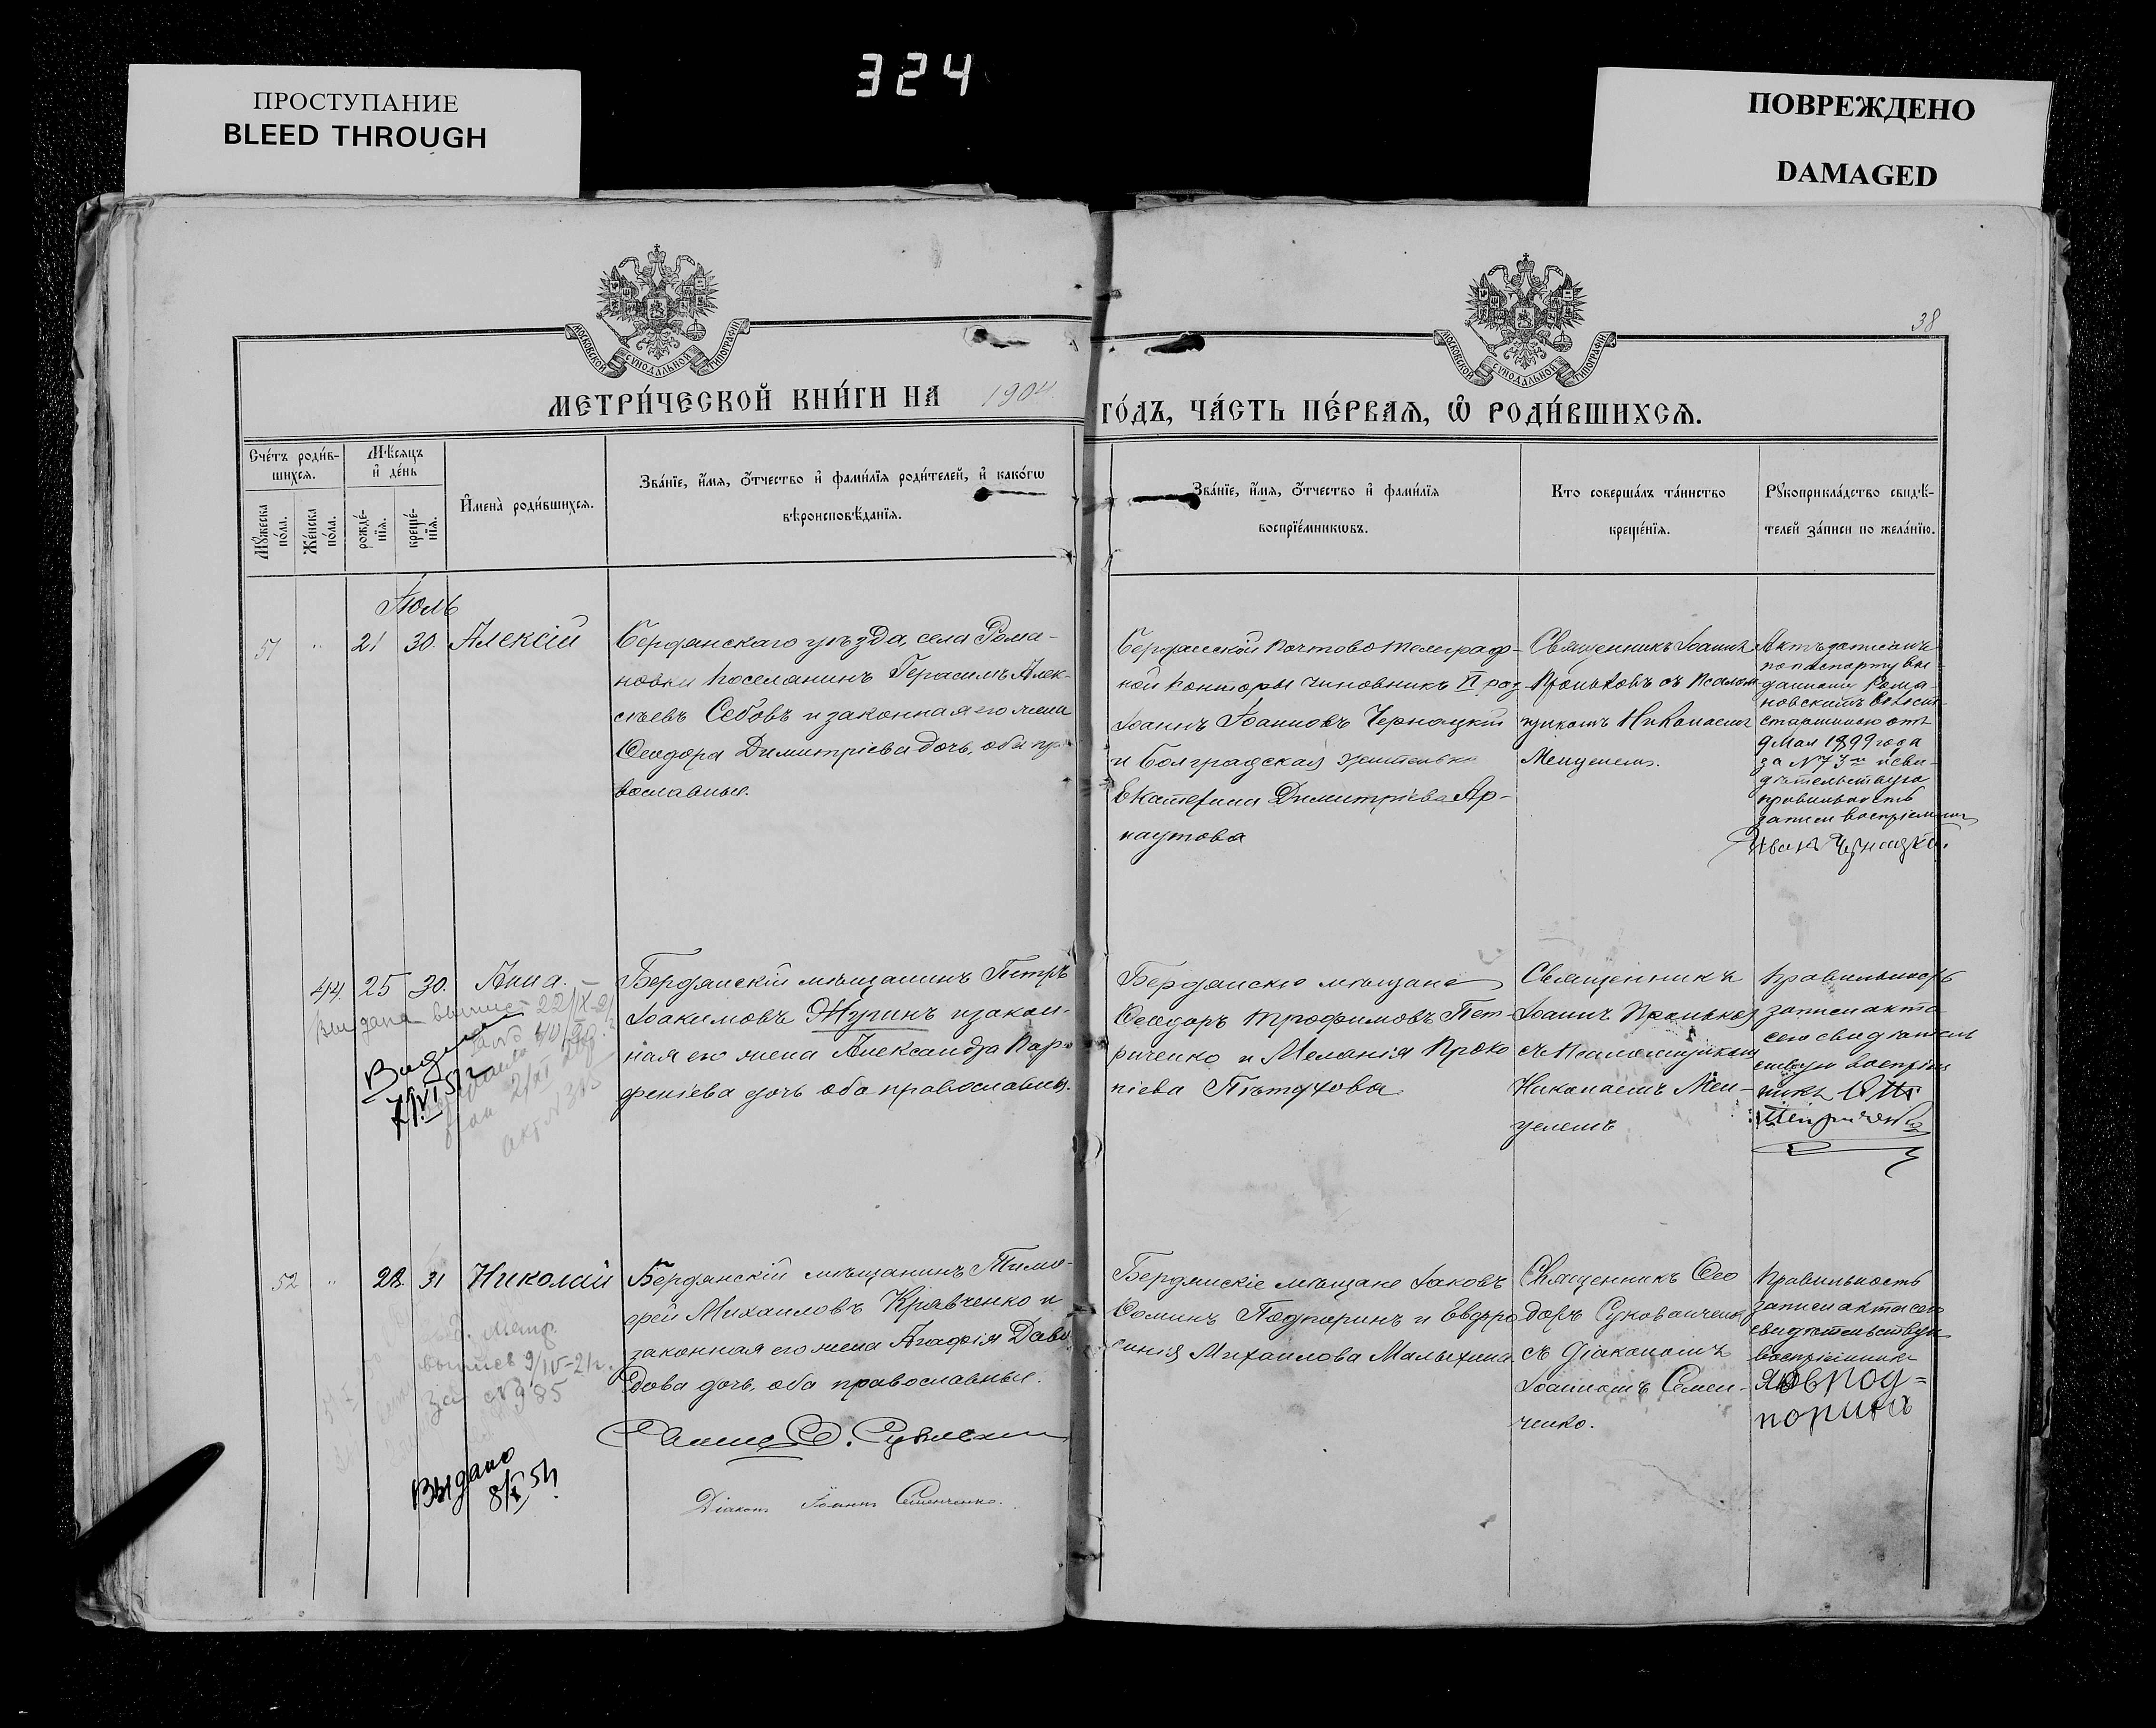 324
ПРОСТУПАНИЕ
BLEED THROUGH
ПОВРЕЖДЕНО
DAMAGED
МОСКОВСКОЙ СУНОДАЛЬНОЙ ТИПОГРАФІИ
МОСКОВСКОЙ СУНОДАЛЬНОЙ ТИПОГРАФІИ
38
МЕТРИ́ЧЕСКОЙ КНИ́ГИ НА 1904
ГО́ДЪ, ЧА́СТЬ ПЕ́РВАѦ, Ѡ҆ РОДИ́ВШИХСѦ.
Сче́тъ роди́в-
шихсѧ.
Мѣ́сѧцъ
и҆ де́нь
Мꙋ́жеска
по́ла.
Же́нска
по́ла.
рожде́-
нїѧ.
креще́-
нїѧ.
И҆мена̀ роди́вшихсѧ.
Зва́нїе, и҆́мѧ, ѻ҆́тчество и҆ фами́лїѧ роди́телей, и҆ како́гѡ
вѣроисповѣ́данїѧ.
Зва́нїе, и҆́мѧ, ѻ҆́тчество и҆ фами́лїѧ
воспрїе́мникѡвъ.
Кто соверша́лъ та́инство
креще́нїѧ.
Рꙋкоприкла́дство свидѣ́-
телей за́писи по жела́нїю.
Іюль
51 " 21 30. Алексій
Бердянскаго уѣзда, села Рома-
новки поселянинъ Герасимъ Алек-
сѣевъ Себовъ и законная его жена
Ѳеодора Димитріева дочь, оба пра-
вославные.
Бердянской почтово телеграф-
ной конторы чиновникъ VI раз
Іоаннъ Іоанновъ Черноцкій
и Болградская
Екатерина Димитріева Ар-
наутова
Священникъ Іоаннъ
съ псалом
щикомъ Николаемъ
Менцелемъ.
Актъ записанъ
по паспорту вы-
данному Рома-
новскимъ волост
старшиною отъ
9 Мая 1899 года
за № 73 и сви-
дѣтельствую
правильность
записи воспріемникъ
Иванъ Черноцкій.
44. 25 30. Анна.
Бердянскій мѣщанинъ Петръ
Іоакимовъ Жугинъ и закон-
ная его жена Александра Пар-
феніева дочь оба православны.
Бердянскіе мѣщане
Ѳеодоръ Трофимовъ Пет-
риченко и Меланія Проко
піева Пѣтухова
Священникъ
Іоаннъ
съ псаломщикомъ
Николаемъ Мен-
целемъ
Правильность
записи акта
сего свидѣтель
ствую воспріем
никъ
Петриченко
Выдана выпись 22/IX-21
21/XI
акт № 313
52 " 28. 31 Николай
Бердянскій мѣщанинъ Тимо-
фей Михаиловъ Кравченко и
законная его жена Агафія Дави
дова дочь, оба православные.
Бердянскіе мѣщане Іаковъ
Ѳоминъ Подпоринъ и Евдро
синія Михаилова Малыхина
Священникъ Ѳео
доръ
съ діакономъ
Іоанномъ Семен-
ченко.
Правильность
записи акта сего
свидѣтельствую
воспріемникъ
Яковъ Под=
порина
выд. метр.
выпись 9/IV-21 г.
за № 985
Выдано
8/X 54
Діаконъ Іоаннъ Семенченко.